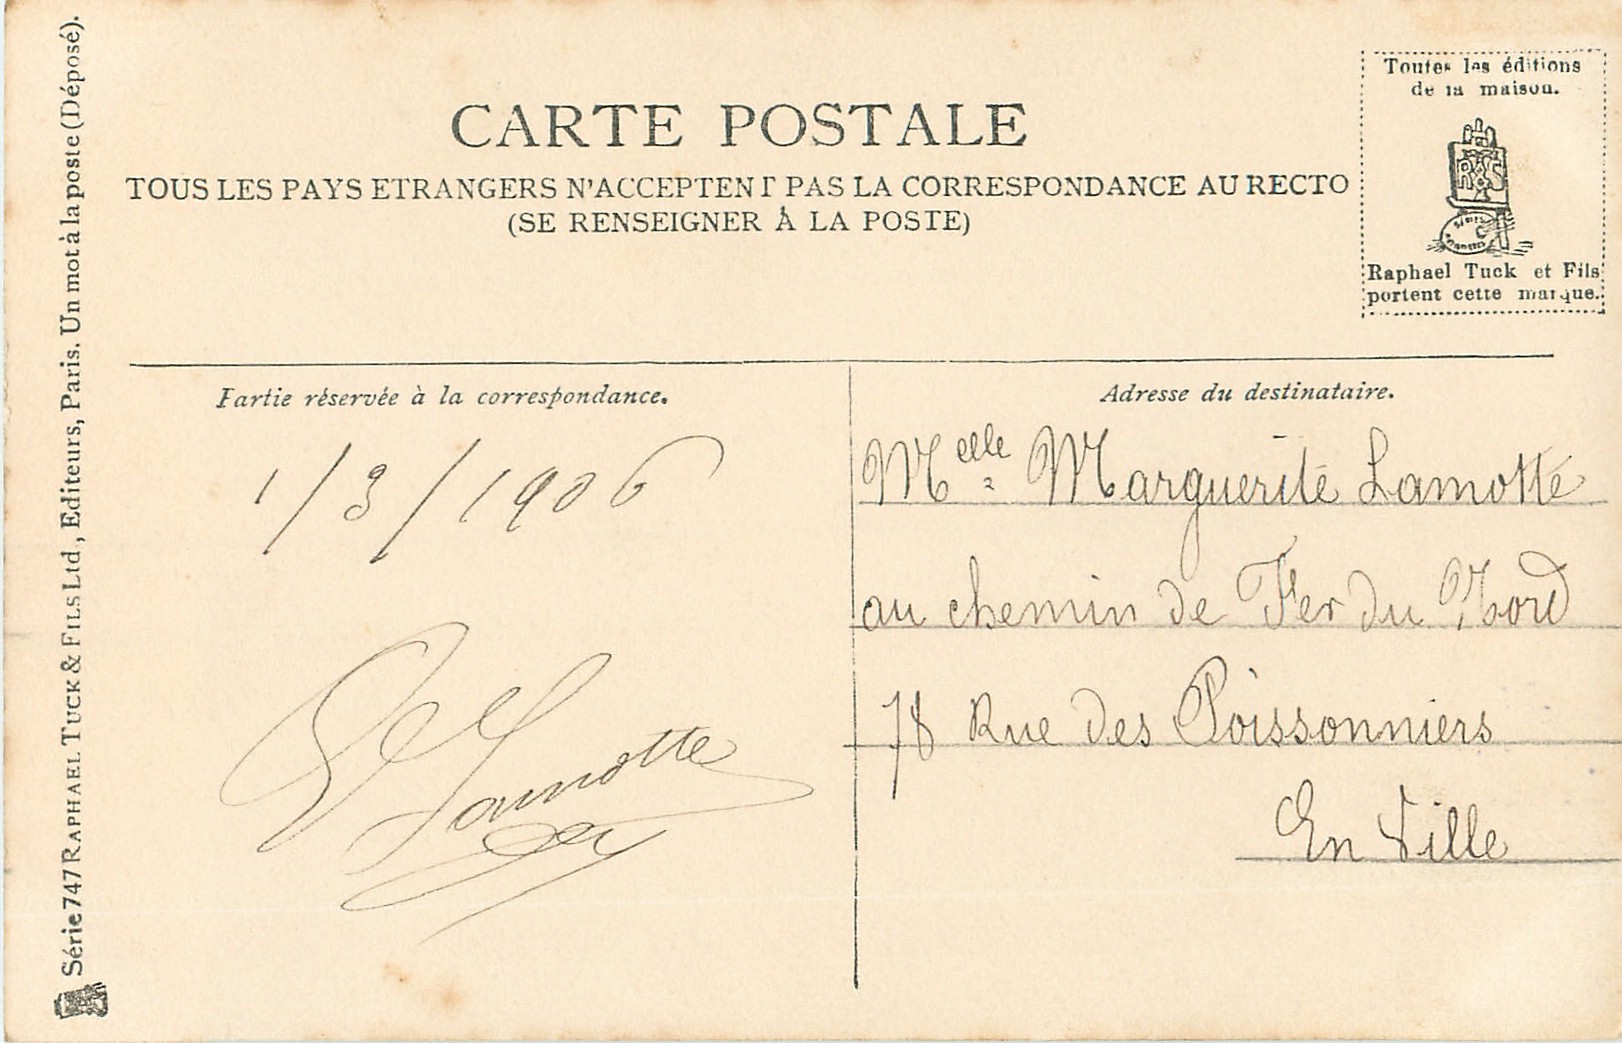 Série 747 RAPHAEL TUCK & FILS Ltd., Editeurs, Paris. Un mot à la poste (Déposé).
CARTE POSTALE
TOUS LES PAYS ETRANGERS N'ACCEPTENT PAS LA CORRESPONDANCE AU RECTO
(SE RENSEIGNER À LA POSTE)
Toutes les éditions
de la maison.
Raphael Tuck et Fils
portent cette marque.
Partie réservée à la correspondance.
1/3/1906
Lamotte
Adresse du destinataire.
Melle Marguerite Lamotte
au chemin de Fer du Nord
78 Rue des Poissonniers
En Ville